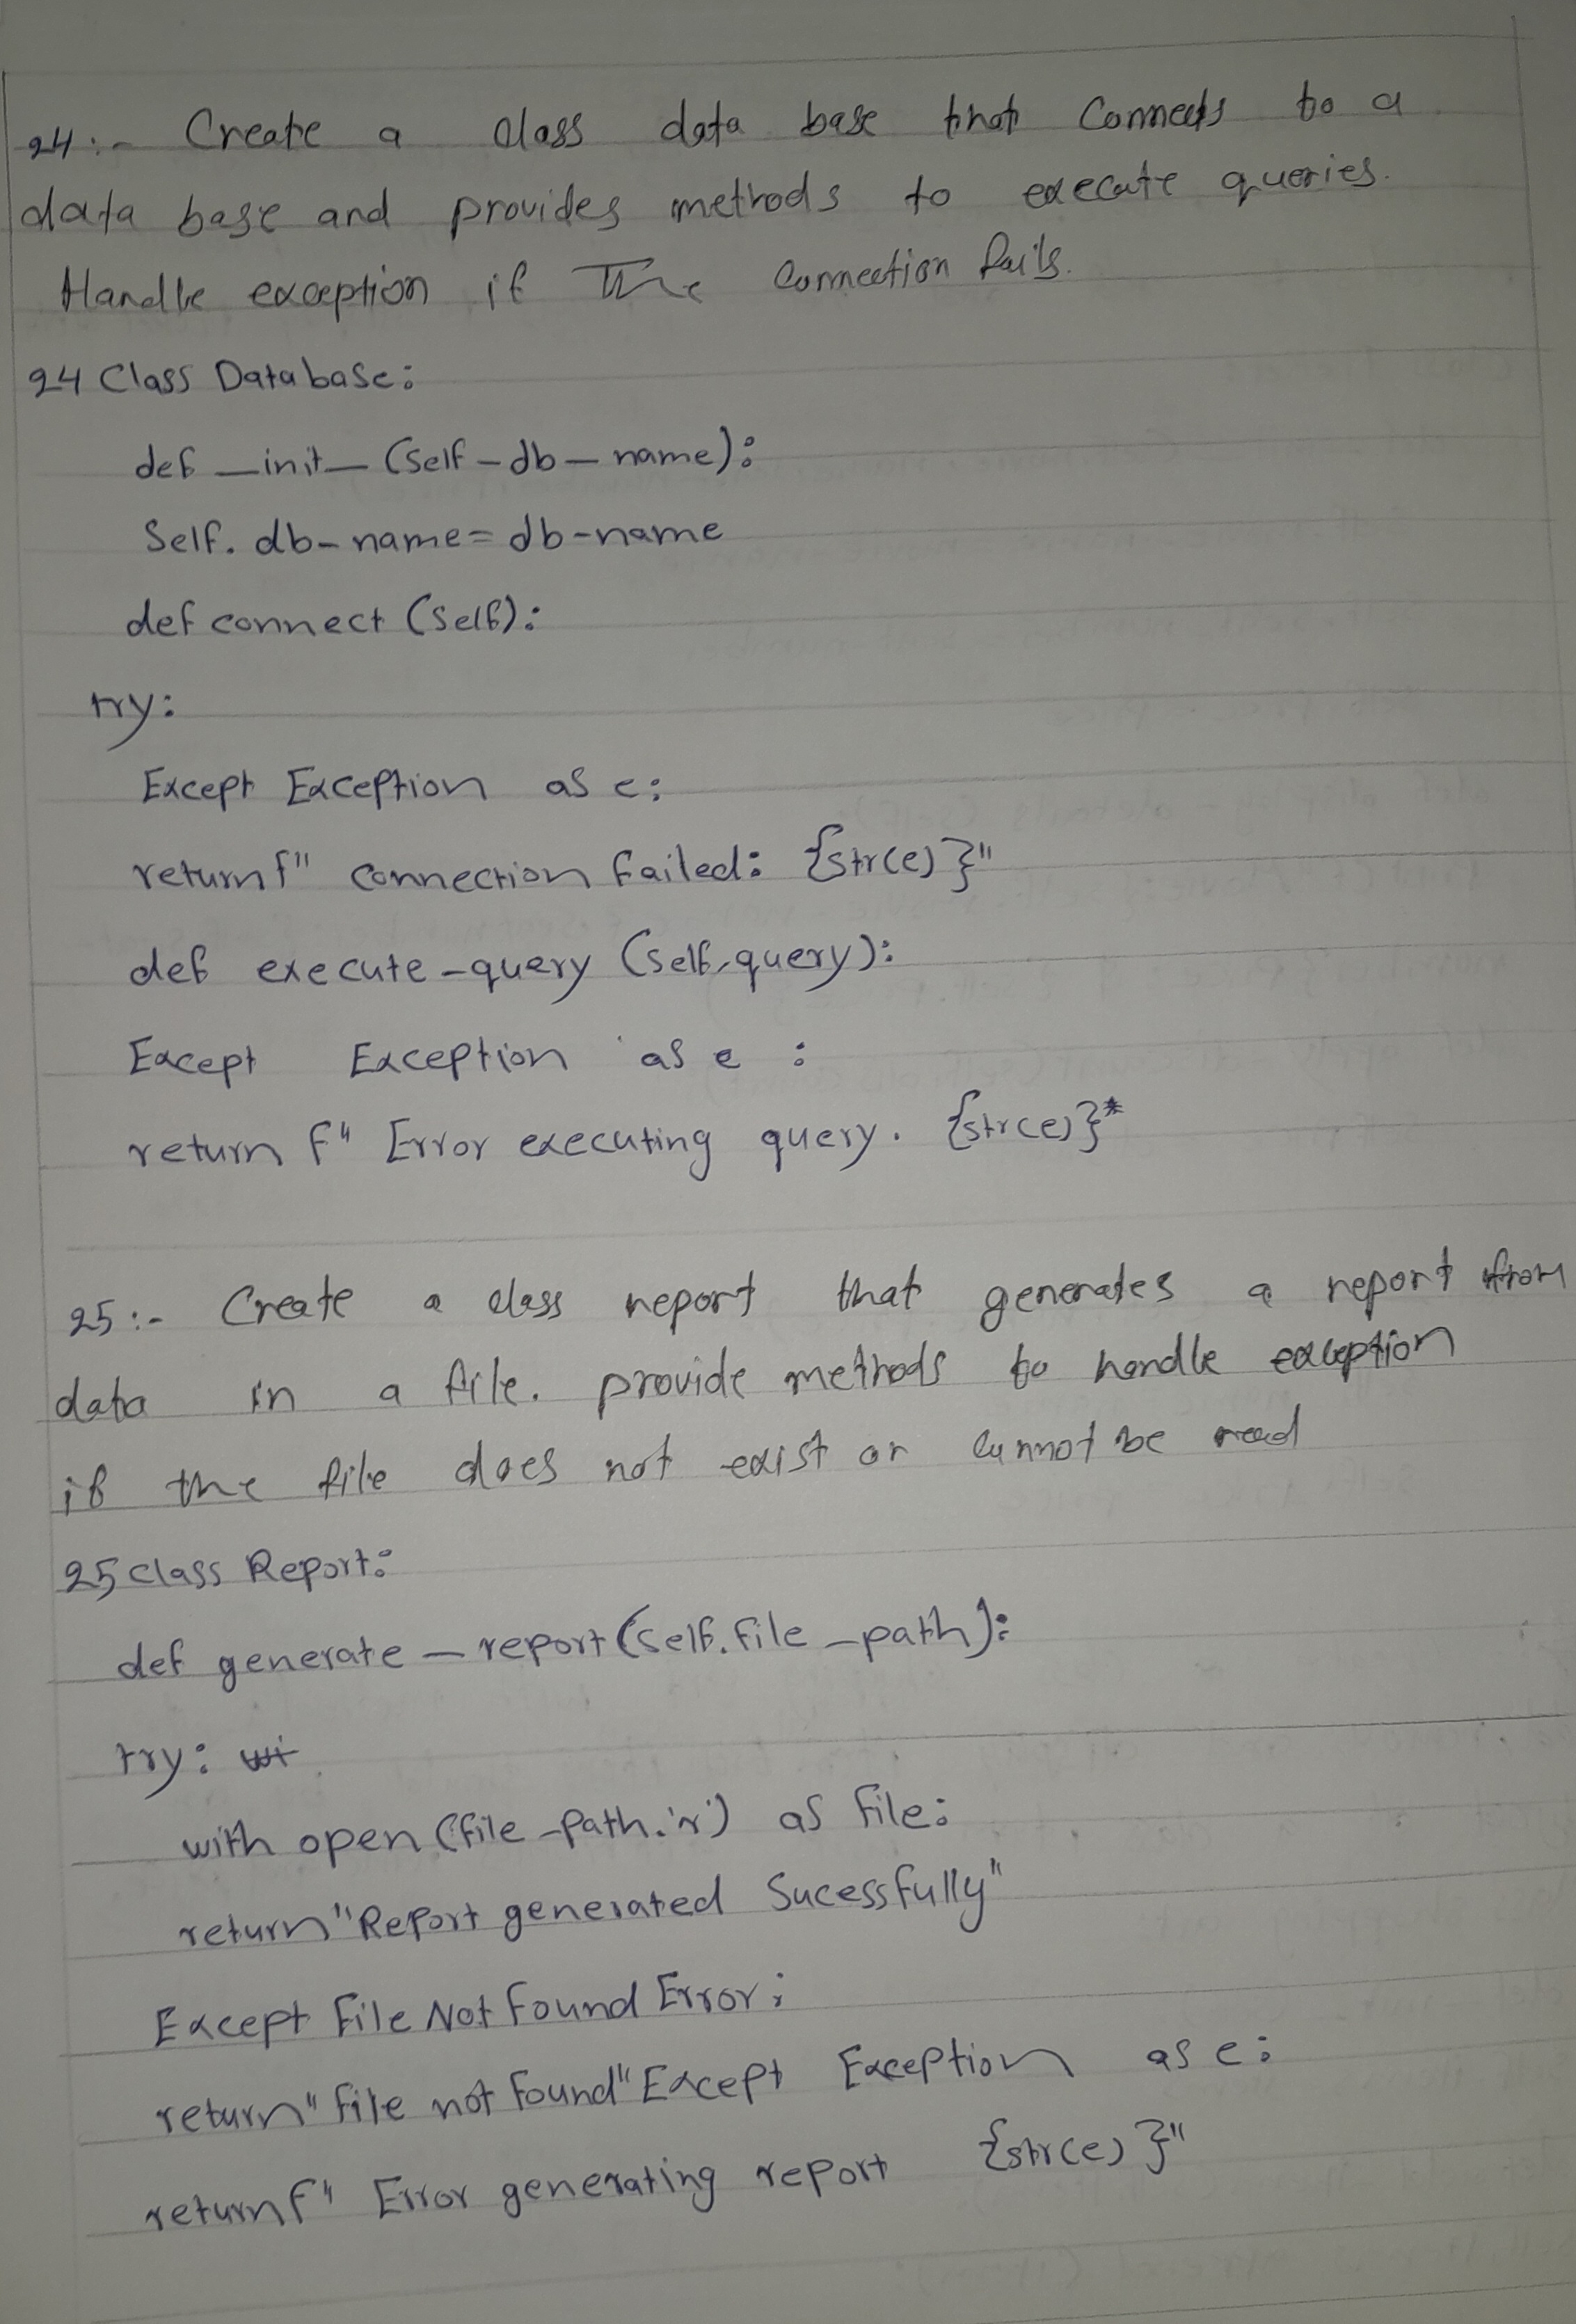 24:- Create a class data base that Connects to a
data base and provides methods to execute queries.
Handle exception if The Connection fails.
24 Class Database:
def _init_ (Self-db-name):
Self. db-name=db-name
def connect (Self):
try:
Except Exception as e:
return f" connection failed: {str(e)}"
def execute-query (self,query):
Except Exception as e :
return f" Error executing query. {str(e)}"
25:- Create a class report that generates a report from
data in a file. provide methods to handle exception
if the file does not exist or cannot be read
25 Class Report:
def generate_report(Self.file_path):
try: wi
with open (file-Path.'r') as file:
return"Report generated Sucessfully"
Except File Not Found Error;
return"file not found"Except Exception as e:
return f" Error generating report {str(e)}"